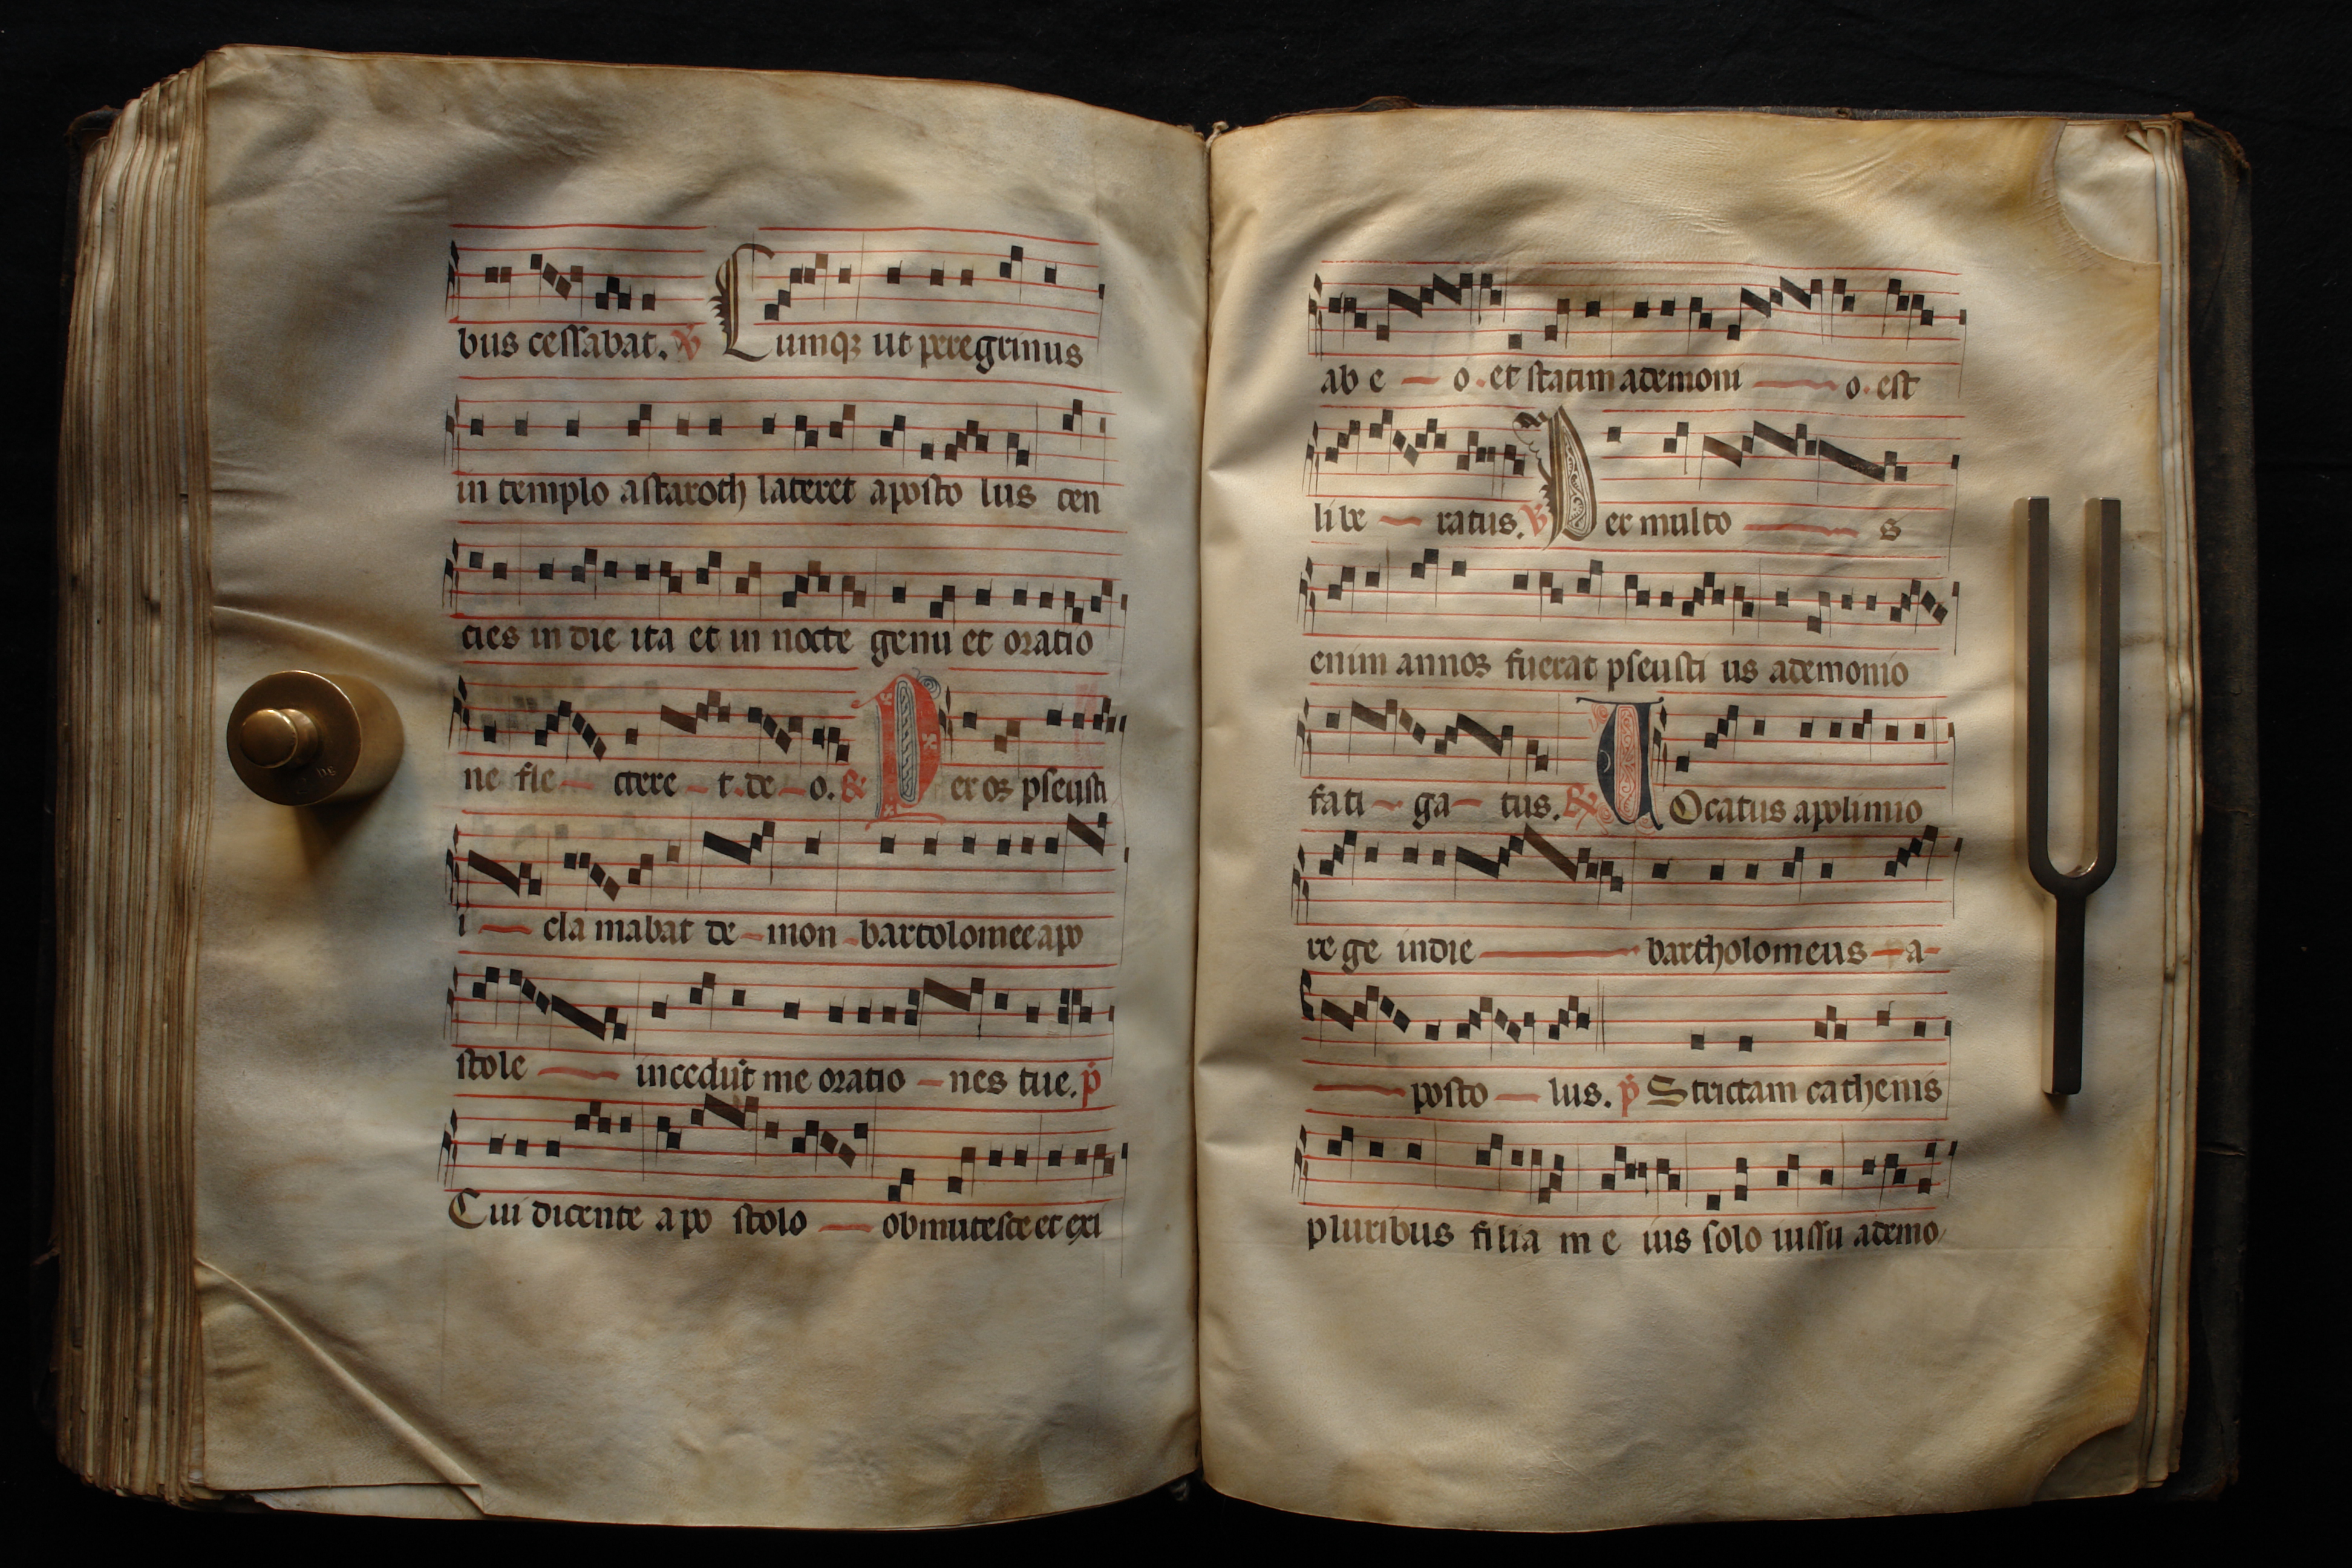 bus cessabat. ℣ Cumqꝫ ut peregrinus
in templo astaroth lateret aposto lus cen
cies in die ita et in nocte genu et oratio
ne fle — ctere — t. de — o. ℟ Per os pseusti
i — cla mabat de — mon — bartolomee apo
stole — incedūt me oratio — nes tue. p̄
Cui dicente apo stolo — obmutesce et exi
ab e — o. et statim ademoni — o. est
libe — ratus. ℣ Per multo — s
enim annos fuerat pseusti us ademonio
fati — ga — tus. ℟ UOcatus apolimio
rege indie — bartholomeus — a-
— posto — lus. p̄ Strictam cathenis
pluribus filia m e ius solo iussu ademo